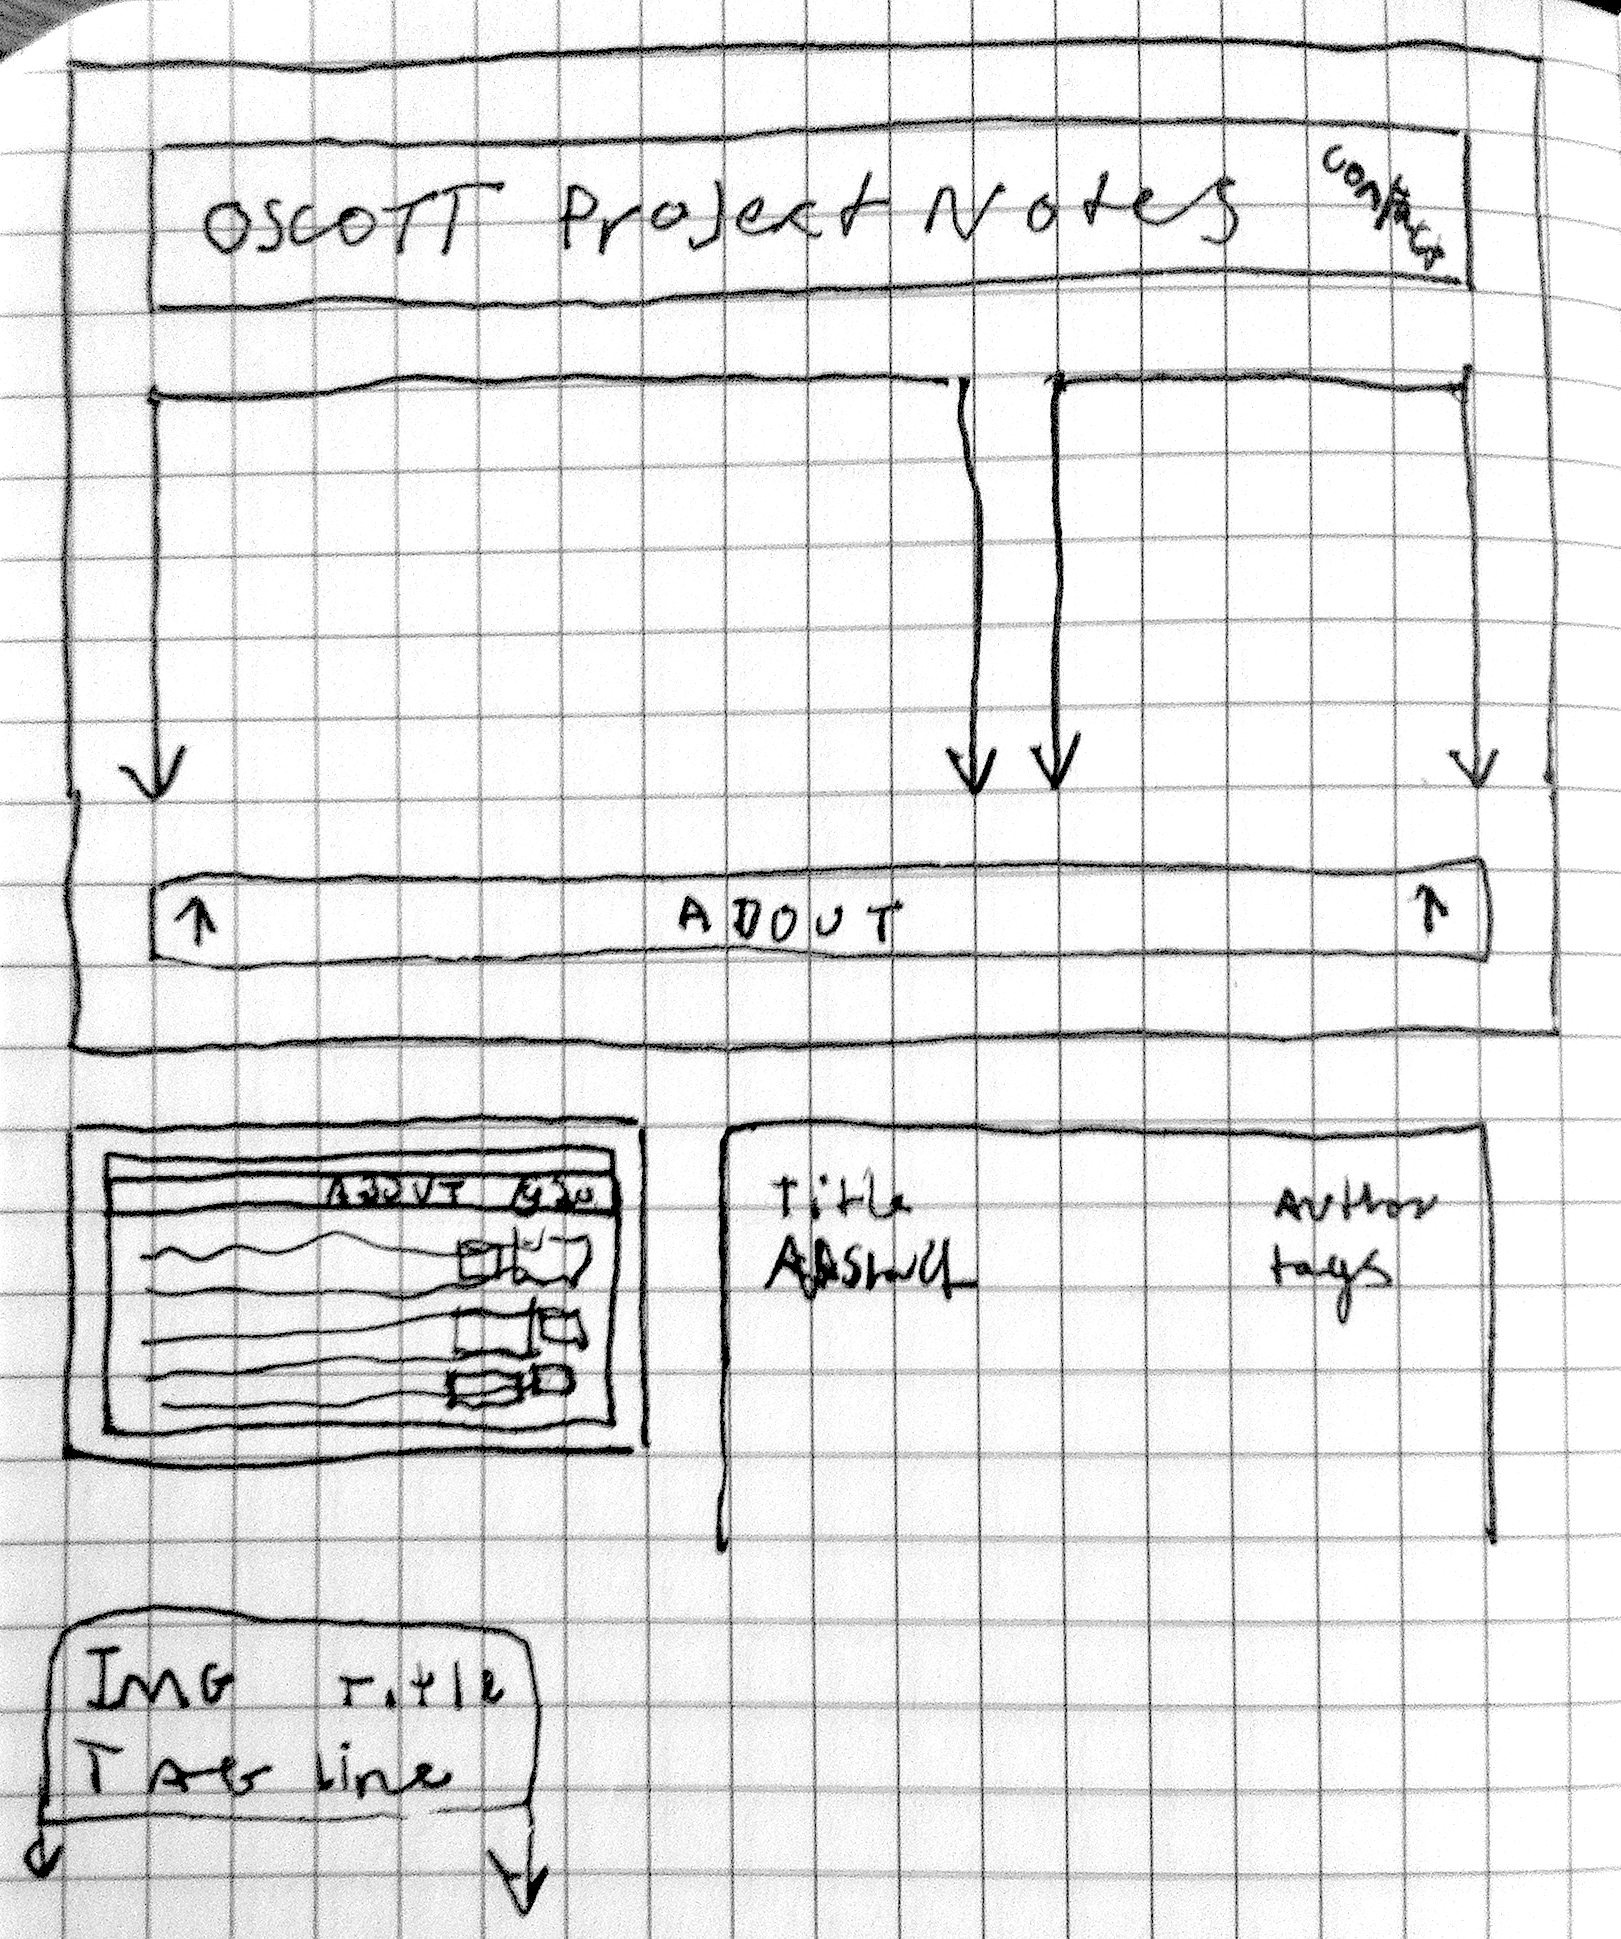 OSCOTT Project Notes contact
ABOUT
ABOUT
Title Author
Abstract tags
IMG Title
TAG line